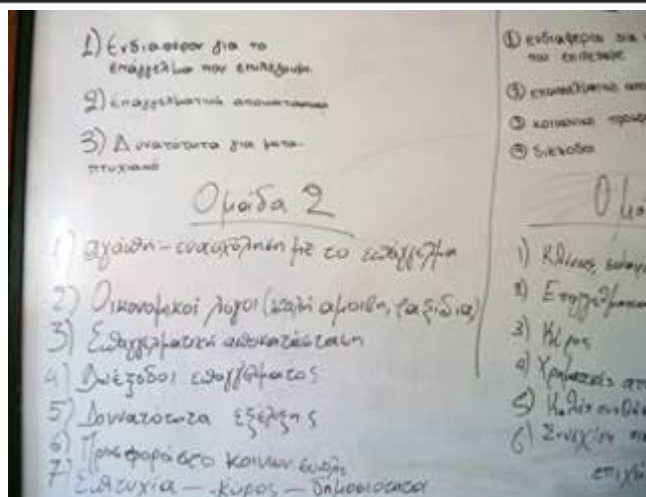 1) Ενδιαφέρον για το
επάγγελμα που επιλέγουμε
2) επαγγελματική αποκατάσταση
3) Δυνατότητα για μετα-
πτυχιακό
Ομάδα 2
1) αγάπη - ενασχόληση με το επάγγελμα
2) Οικονομικοί λόγοι (καλή αμοιβή, ταξίδια)
3) Επαγγελματική αποκατάσταση
4) Διέξοδοι επαγγέλματος
5) Δυνατότητα εξέλιξης
6) Προσφορά στο κοινων. σύνολο
7) Επιτυχία - κύρος - δημοσιότητα
① ενδιαφέρον για
που επιλέγουμε
② επαγγελματική απο
③ κοινωνική προσφ
④ διέξοδοι
Ομά
1)
2) Επαγγελματικ
3) Κύρος
4) Χρηματικές απ
5) Καλές συνθήκ
6) Συνεχίση
επιχ